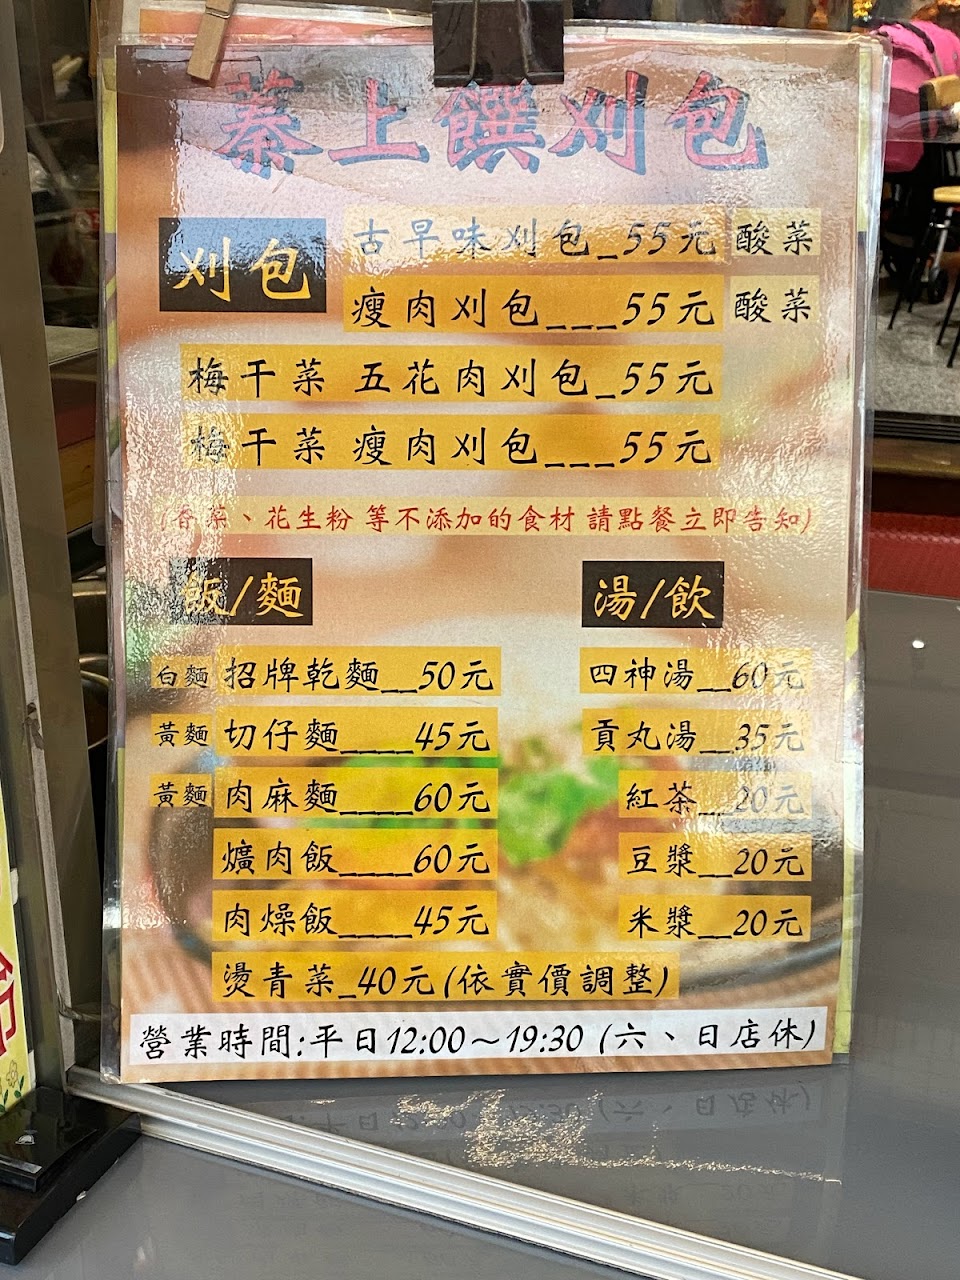 蓁上饌刈包
刈包
古早味刈包_55元 酸菜
瘦肉刈包___55元 酸菜
梅干菜 五花肉刈包_55元
梅干菜 瘦肉刈包___55元
(香菜、花生粉 等不添加的食材 請點餐立即告知)
飯/麵
白麵 招牌乾麵__50元
黃麵 切仔麵____45元
黃麵 肉麻麵____60元
爌肉飯____60元
肉燥飯____45元
燙青菜_40元(依實價調整)
湯/飲
四神湯__60元
貢丸湯__35元
紅茶__20元
豆漿__20元
米漿__20元
營業時間:平日12:00～19:30 (六、日店休)